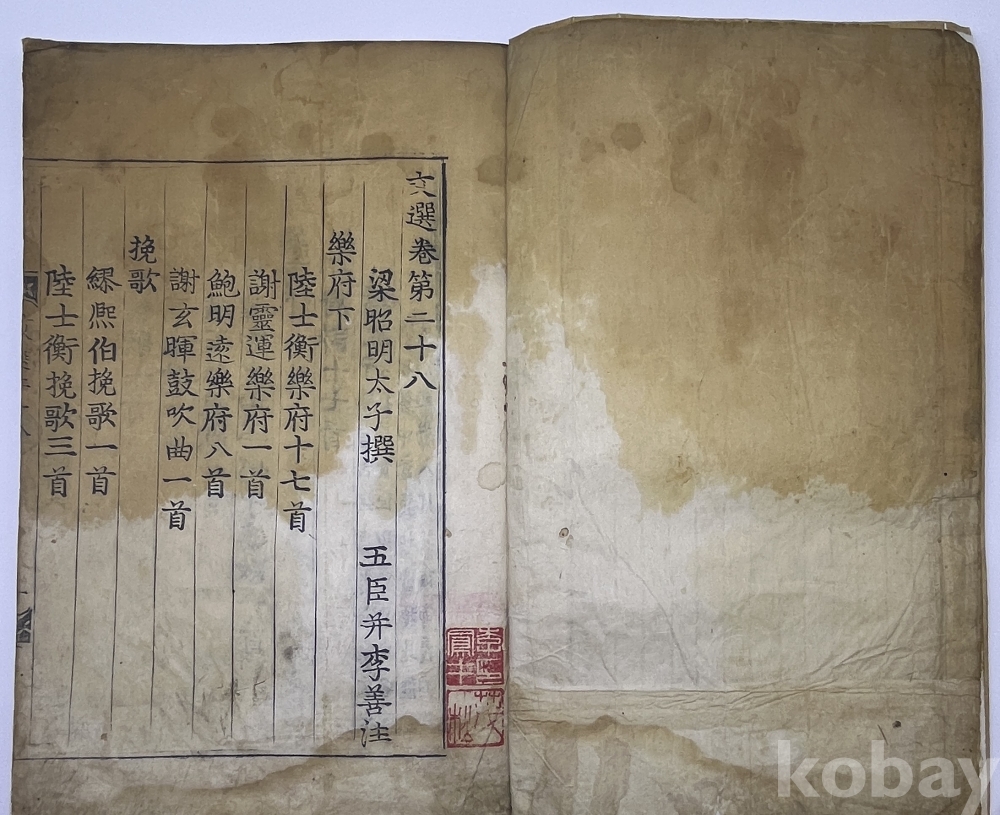 文選卷第二十八
梁昭明太子撰 五臣并李善注
樂府下
陸士衡樂府十七首
謝靈運樂府一首
鮑明遠樂府八首
謝玄暉鼓吹曲一首
挽歌
繆熈伯挽歌一首
陸士衡挽歌三首
kobay